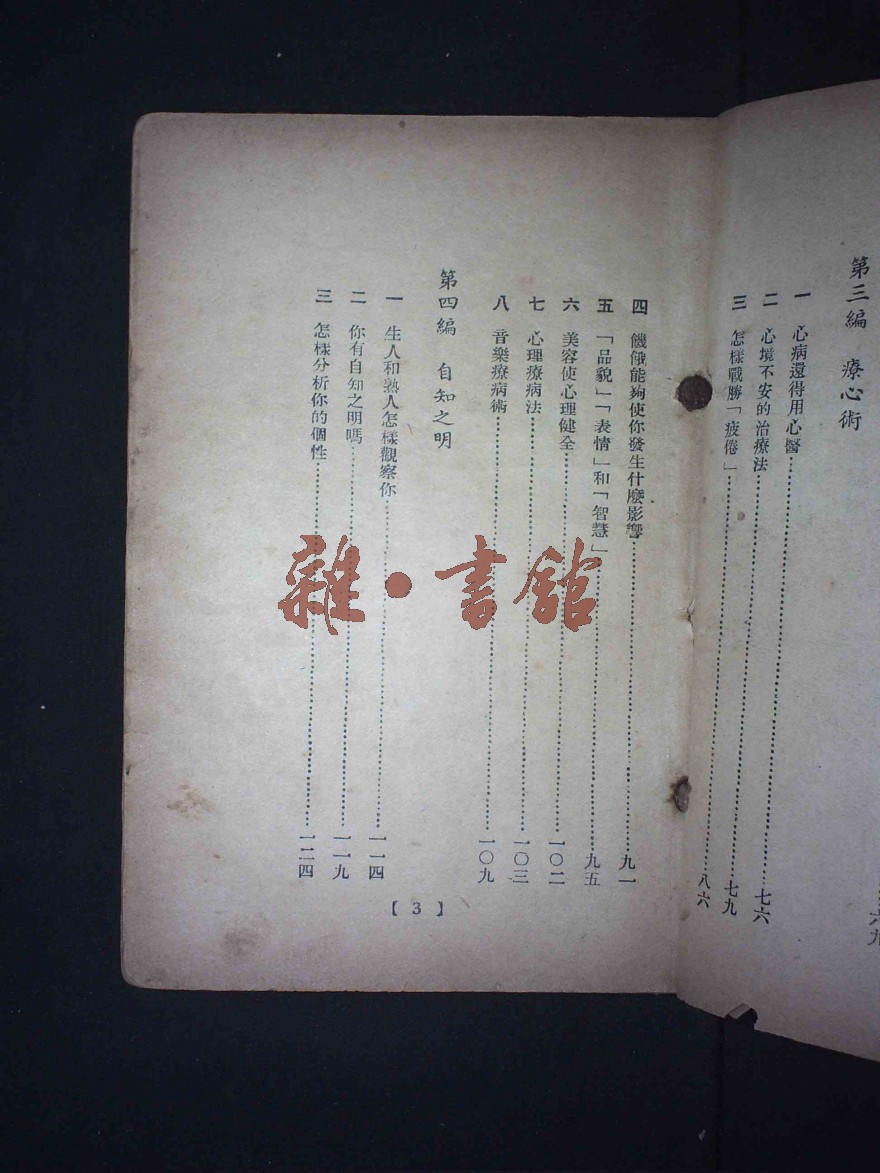 六九
第三編 療心術
一 心病還得用心醫……七六
二 心境不安的治療法……七九
三 怎樣戰勝「疲倦」……八六
四 饑餓能夠使你發生什麼影響……九一
五 「品貌」「表情」和「智慧」……九五
六 美容使心理健全……一〇二
七 心理療病法……一〇三
八 音樂療病術……一〇九
第四編 自知之明
一 生人和熟人怎樣觀察你……一一四
二 你有自知之明嗎……一一九
三 怎樣分析你的個性……一二四
【3】
雜·書館